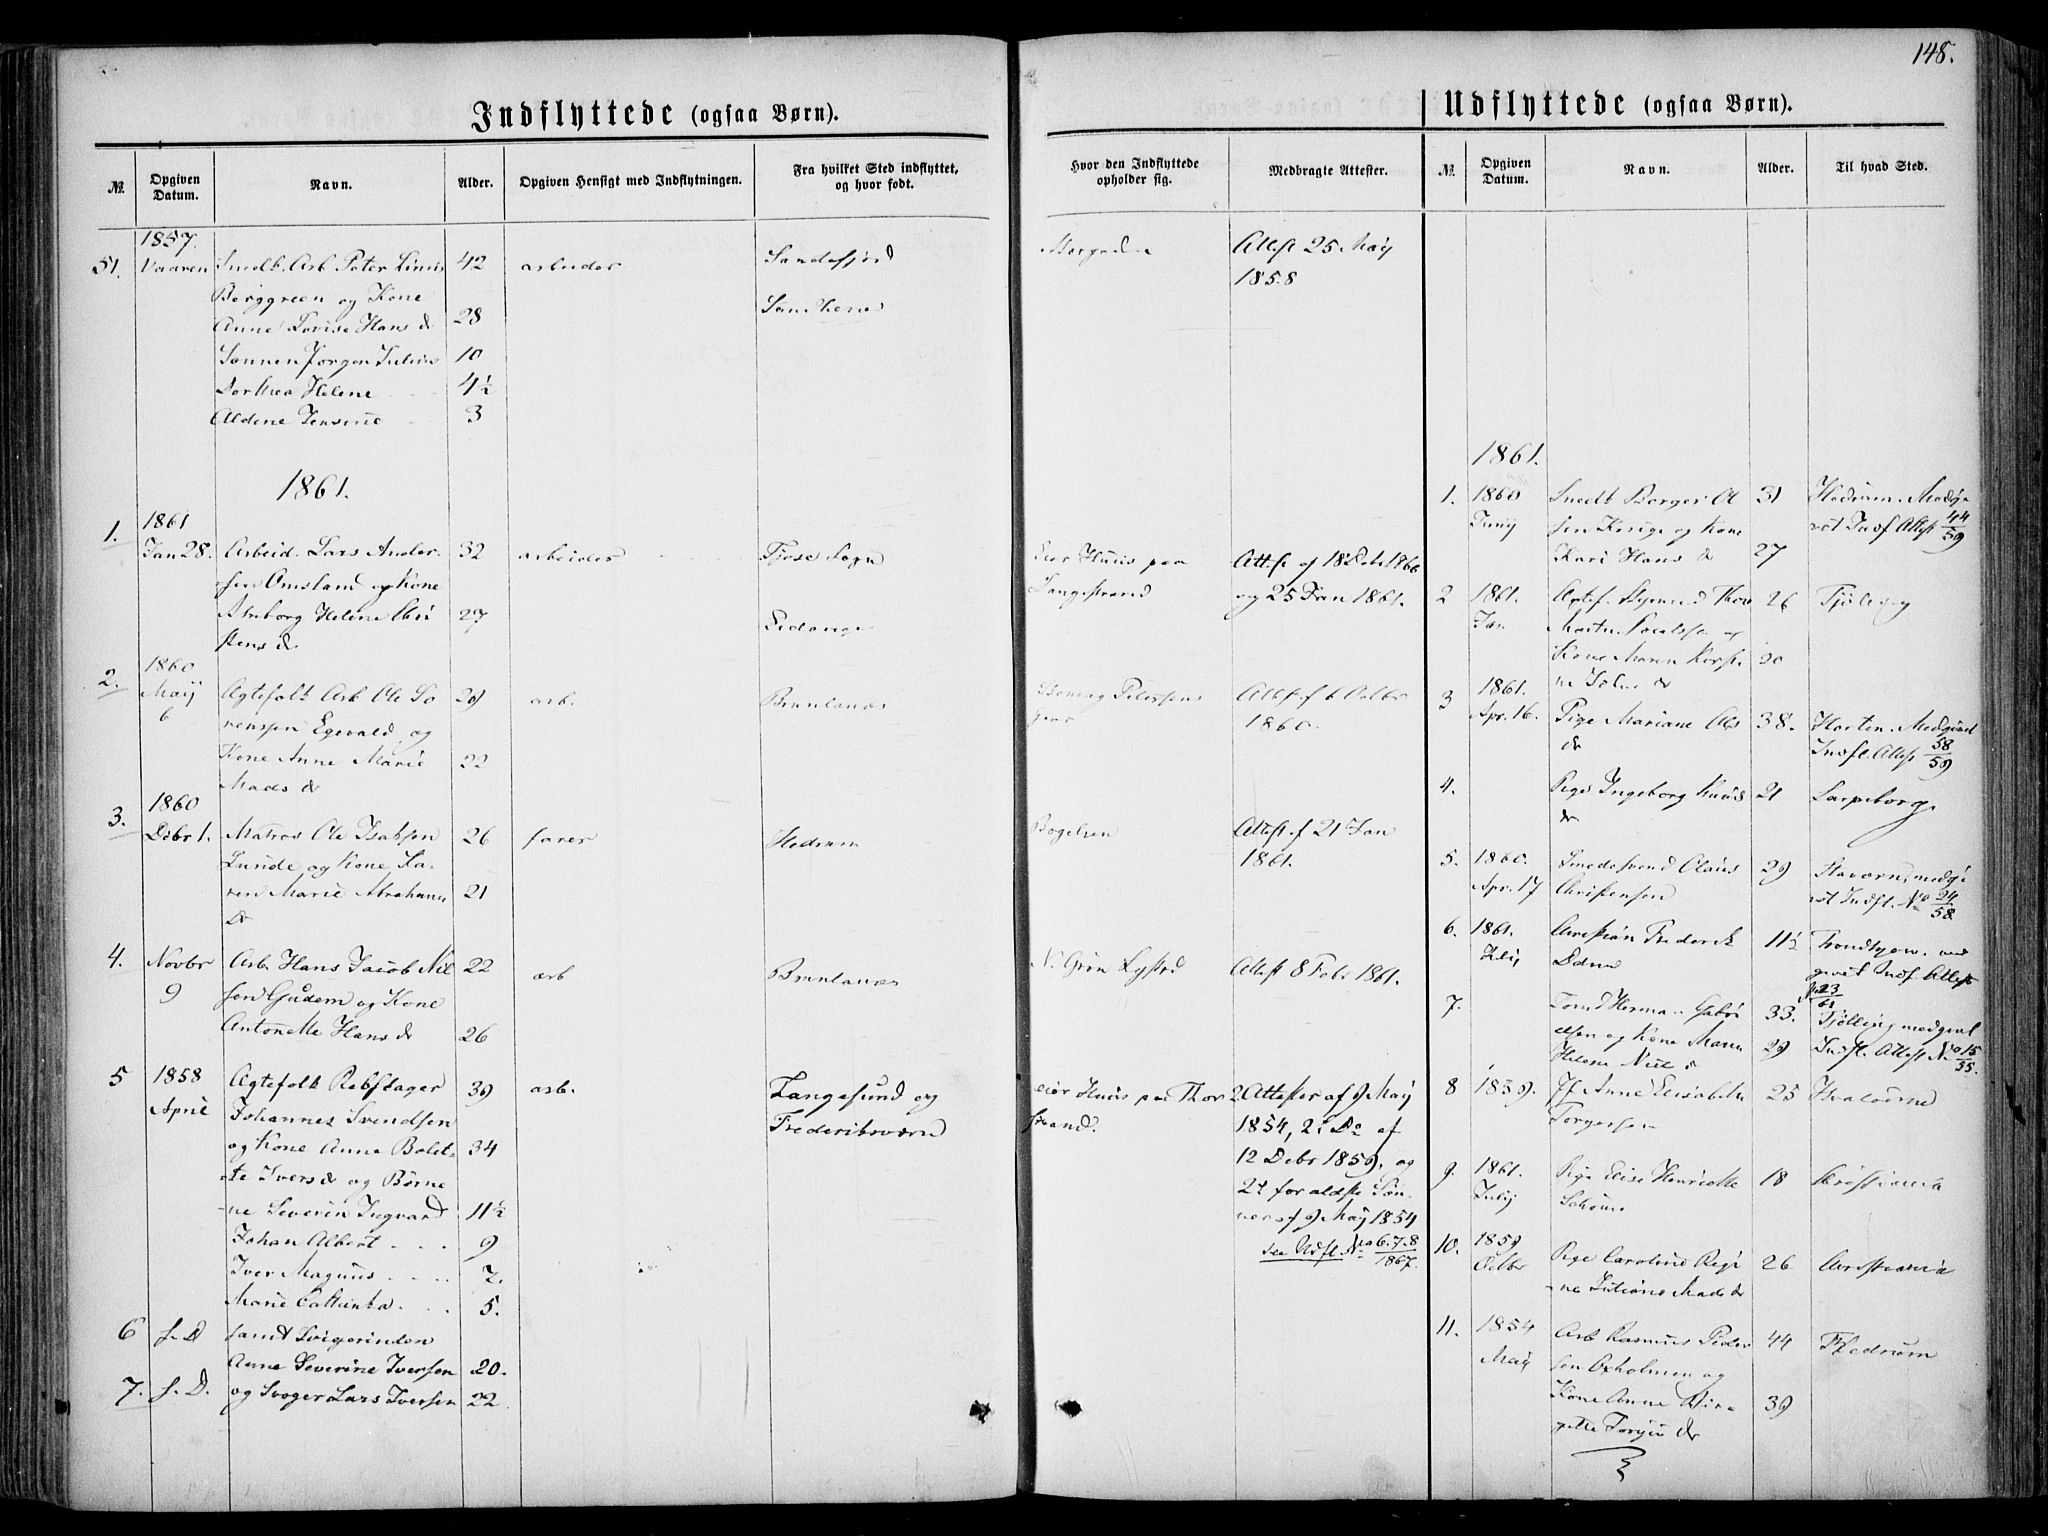 148.
Indflyttede (ogsaa Børn).
№.
Opgiven Datum.
Navn.
Alder.
Opgiven Hensigt med Indflytningen.
Fra hvilket Sted indflyttet, og hvor født.
Hvor den Indflyttede opholder sig.
Medbragte Attester.
1857.
51. Vaaren Snedk. Arb. Peter Linus 42 arbeider Sandefjord Attest 25 May
Berggreen og Kone 1858
Anne Lovise Hans d 28
Sønnen Jørgen Julius 10
Dorthea Helene 4½
Aldine Jensine 3
1861.
1. 1861
Jan 28. Arbeid. Lars Ander- 32 arbeider Tjose Sogn Eier Huus paa Attest af 18 Deb 1860
sen Omsland og Kone Langestrand og 25 Jan 1861.
Anborg Helene Chri 27 Eidanger
stens d
2. 1860
May Agtefolk Arb Ole So 29 arb. Brunlanæs Pedersens Attest f 6 Octbr
6 rensen Egevald og Gaar 1860.
Kone Anne Marie 22
Mads d
3. 1860
Debr 1. Matros Ole Isaksen 26 farer Hedrum Bøgelsen Attest f 21 Jan
Lunde og Kone Ka- 1861.
ren Marie Abrahams 21
d
4. Novbr Arb. Hans Jacob Nil 22 arb Brunlanæs Attest 8 Febr 1861.
9 sen og Kone
Antonette Hans d 26
5 1858 Agtefolk Rebslager 39 arb. Langesund og eier Huus paa Thor 2 Attester af 9 May
April Johannes Svendsen Frederiksværn strand. 1854, 2: Do af
og Kone Anna Bolet- 34 12 Debr 1859, og
te Ivers d og Børne 2t for aldste Søn-
ne Severin Ingvard 11½ ner af 9 May 1854
Johan Albert 9 see Udfl. No 6.7.8
1867.
Iver Magnus 7.
Marie Cathinka 5.
6 s. D samt Svigerinden
Anne Severine Iversen 20.
7. s. D. og Svoger Lars Iversen 22
Udflyttede (ogsaa Børn).
№.
Opgiven Datum.
Navn.
Alder.
Til hvad Sted.
1861.
1. 1860 Snedk Berger Ol 31 Hedrum. Medgi
Juny sen og Kone vet Indf Attest 44/59
Kari Hans d 27
2 1861. Agtef. 26 Tjølling
Jan og
Kone Maren Kirsti 30
ne d
3 1861.
Apr. 16. Pige Mariane Ols 38. Horten. Medgivet
d Indfl. Attest 58/59
4. Pige Ingeborg Knuds 21 Sarpsborg
d
5. 1860. Smedesvend Claus 29 Stavern, medgi
Apr. 17 Christensen vet Indfl. No 24/58.
6. 1861. Christian Frederik 11½ Trondhjem. med
givet Indf. Attest
No 23/61
7. Herman Gabri 33. Tjølling, medgivet
elsen og Kone Maren 29 Indfl. Attest No 15/55.
Helene Niels d
8 1859. Jf Anne Elisabeth 25 Hvaløerne
Torgersen
9. 1861. Pige Elise Henriette 18 Christiania
July
10. 1859
Octbr Pige Caroline Regi 26 Christiania
ne Juliane Mads d
11. 1854 Arb Rasmus Peder 44 Hedrum
May sen Oxholmen og
Kone Anne Bir- 39
gitte d